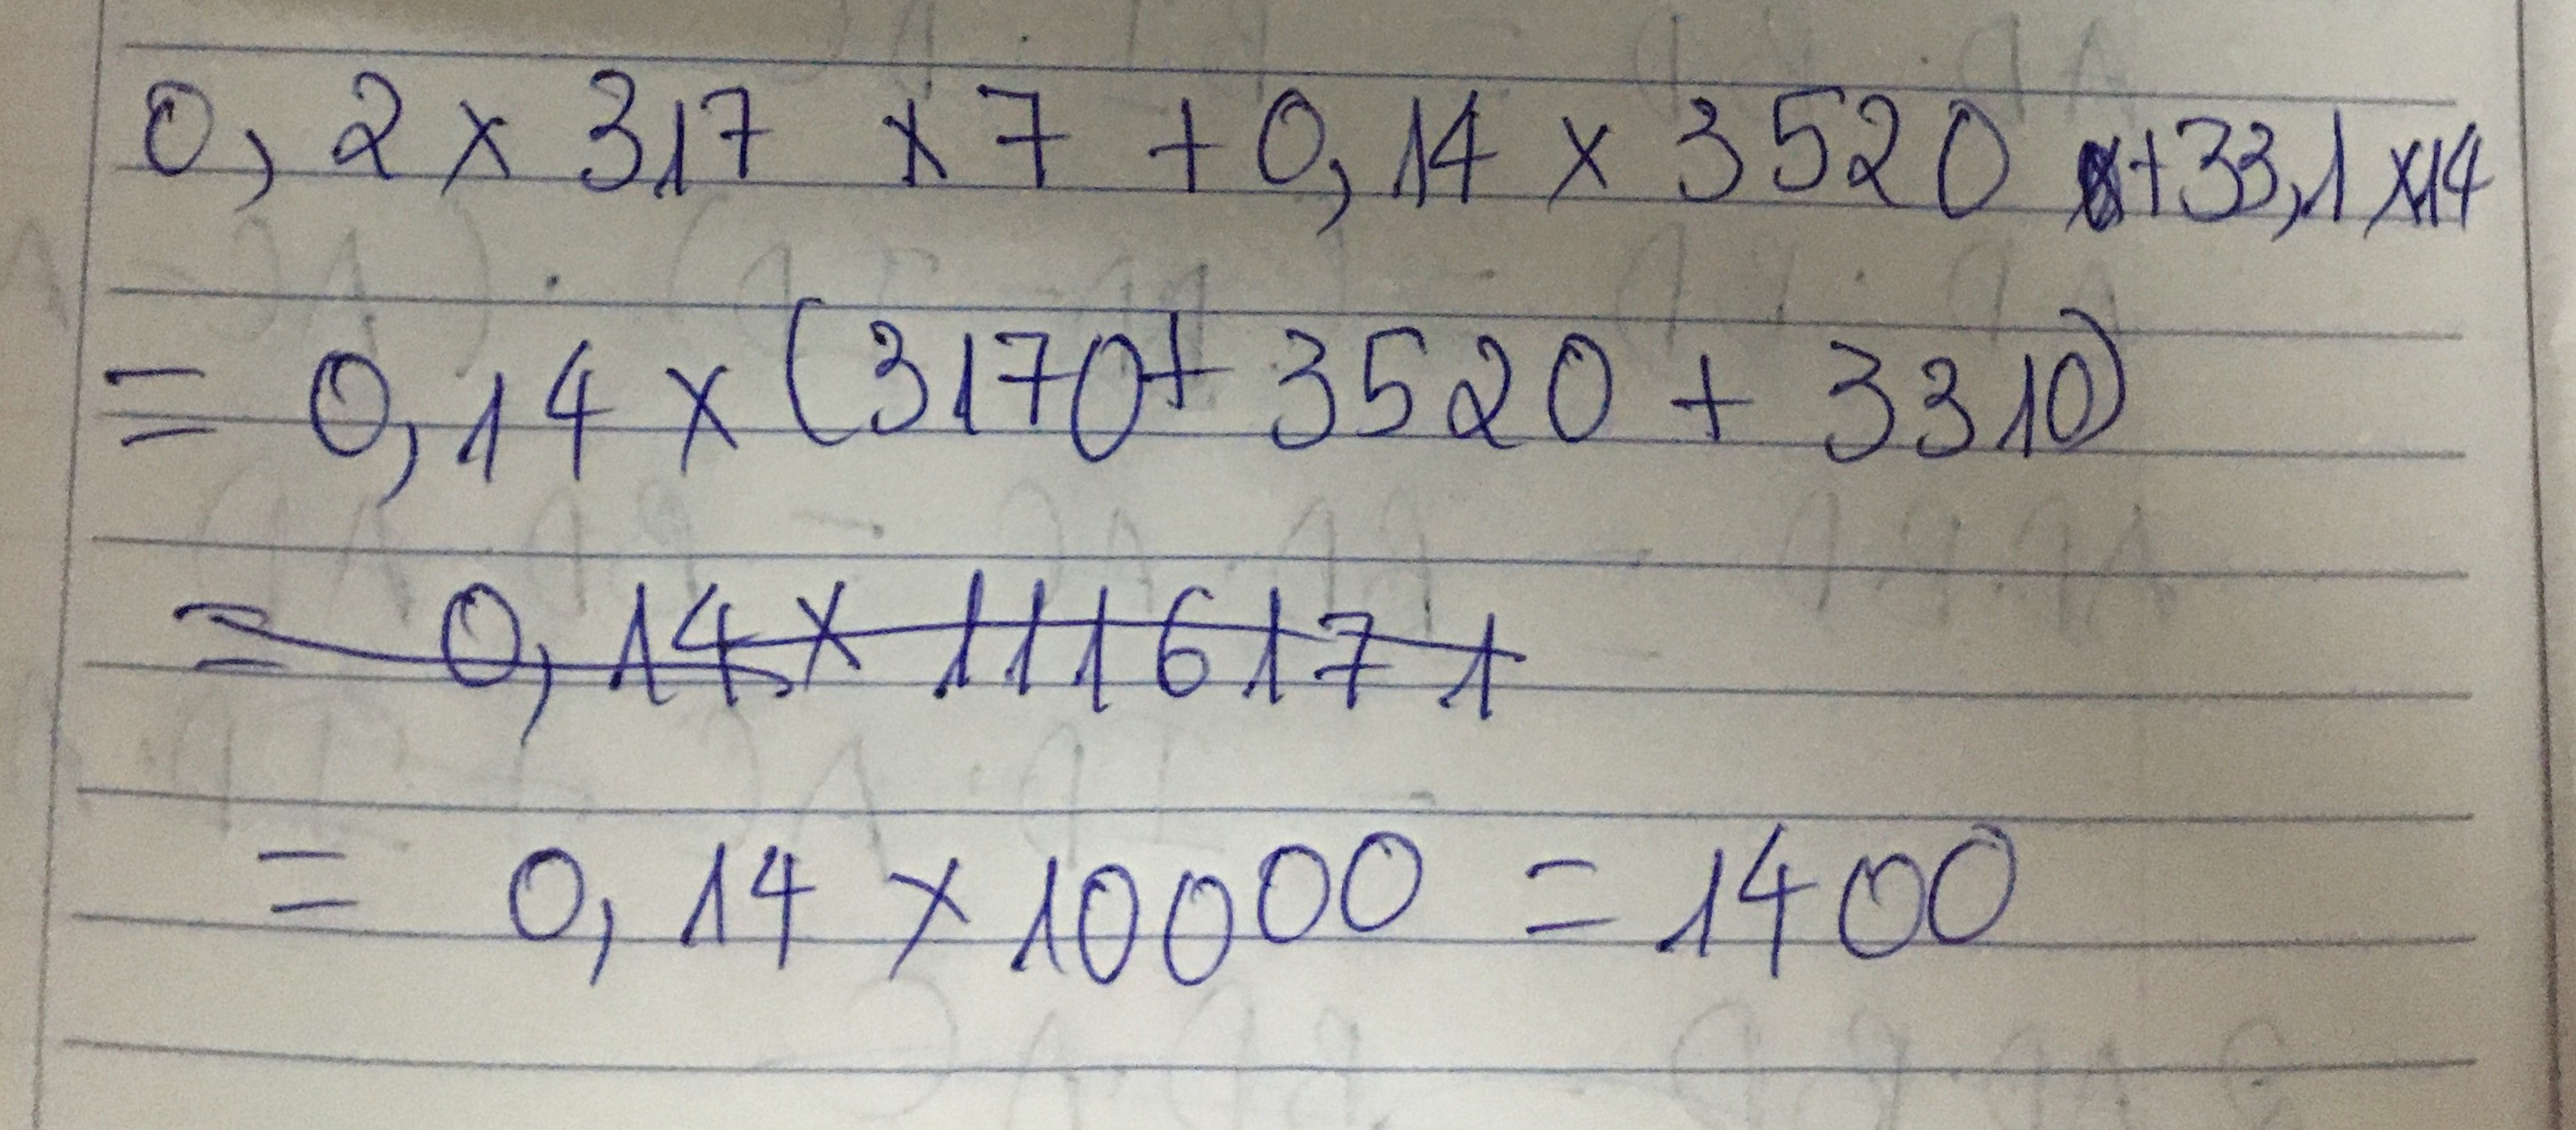 0,2 x 317 x 7 + 0,14 x 3520 + 33,1 x 14
= 0,14 x (3170 + 3520 + 3310)
= 0,14 x 1116171
= 0,14 x 10000 = 1400